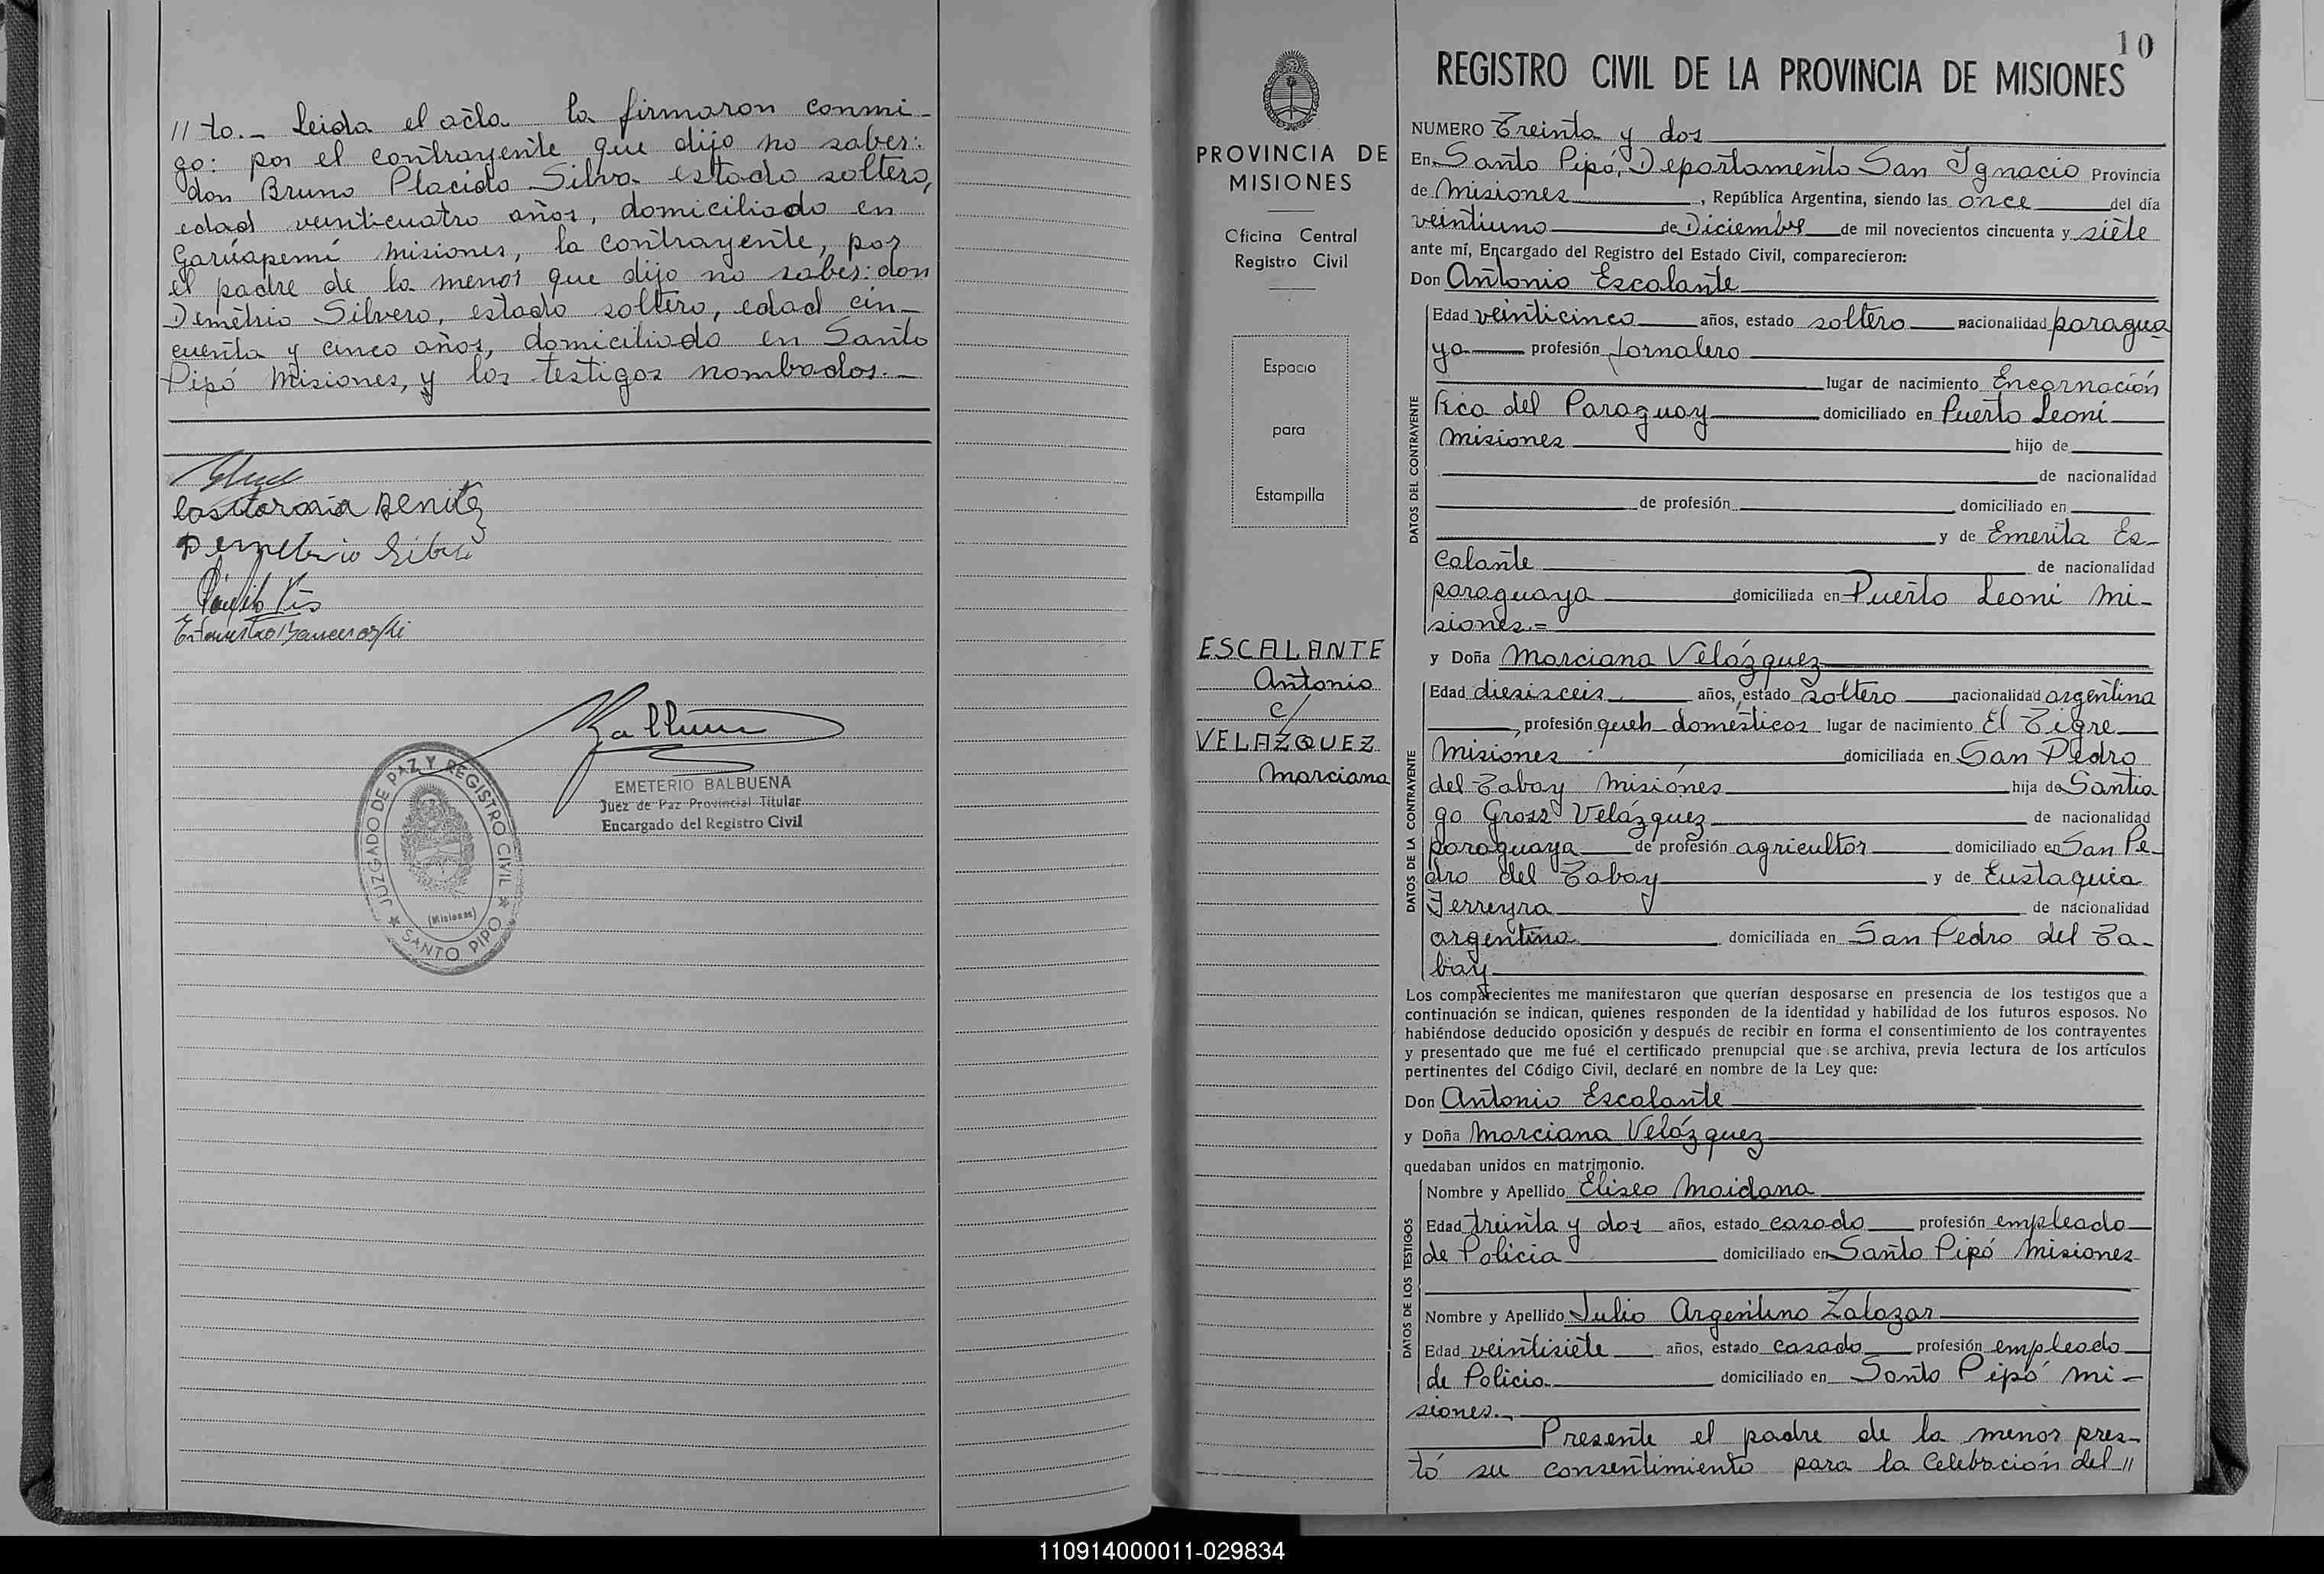 // to.- Leida el acta la firmaron conmi-
go: por el contrayente que dijo no saber:
don Bruno Placido Silva estado soltero,
edad veinticuatro años, domiciliado en
Garúapemí Misiones, la contrayente, por
el padre de la menor que dijo no saber: don
Demetrio Silvero, estado soltero, edad cin-
cuenta y cinco años, domiciliado en Santo
Pipó Misiones, y los testigos nombados.-
EMETERIO BALBUENA
Juez de Paz Provincial Titular
Encargado del Registro Civil
JUZGADO DE PAZ Y REGISTRO CIVIL
(Misiones)
SANTO PIPO
PROVINCIA DE
MISIONES
Oficina Central
Registro Civil
Espacio
para
Estampilla
ESCALANTE
Antonio
c/
VELAZQUEZ
Marciana
10
REGISTRO CIVIL DE LA PROVINCIA DE MISIONES
NUMERO Treinta y dos
En Santo Pipó, Departamento San Ignacio Provincia
de Misiones, República Argentina, siendo las once del día
veintiuno de Diciembre de mil novecientos cincuenta y siete
ante mí, Encargado del Registro del Estado Civil, comparecieron:
Don Antonio Escalante
DATOS DEL CONTRAYENTE
Edad veinticinco años, estado soltero nacionalidad paragua
ya profesión Jornalero
lugar de nacimiento Encarnación
Rca del Paraguay domiciliado en Puerto Leoni
Misiones hijo de
de nacionalidad
de profesión domiciliado en
y de Emerita Es-
calante de nacionalidad
paraguaya domiciliada en Puerto Leoni Mi-
siones.=
y Doña Marciana Velázquez
DATOS DE LA CONTRAYENTE
Edad diesisceis años, estado soltero nacionalidad argentina
, profesión queh. domésticos lugar de nacimiento El Tigre
Misiones domiciliada en San Pedro
del Tabay Misiones hija de Santia
go Gross Velázquez de nacionalidad
paraguaya de profesión agricultor domiciliado en San Pe-
dro del Tabay y de Eustaquia
Ferreyra de nacionalidad
argentina domiciliada en San Pedro del Ta-
bay
Los comparecientes me manifestaron que querían desposarse en presencia de los testigos que a
continuación se indican, quienes responden de la identidad y habilidad de los futuros esposos. No
habiéndose deducido oposición y después de recibir en forma el consentimiento de los contrayentes
y presentado que me fué el certificado prenupcial que se archiva, previa lectura de los artículos
pertinentes del Código Civil, declaré en nombre de la Ley que:
Don Antonio Escalante
y Doña Marciana Velázquez
quedaban unidos en matrimonio.
DATOS DE LOS TESTIGOS
Nombre y Apellido Eliseo Maidana
Edad treinta y dos años, estado casado profesión empleado
de Policia domiciliado en Santo Pipó Misiones
Nombre y Apellido Julio Argentino Zalazar
Edad veintisiete años, estado casado profesión empleado
de Policia domiciliado en Santo Pipó Mi-
siones.-
Presente el padre de la menor pres-
tó su consentimiento para la celebración del //
110914000011-029834